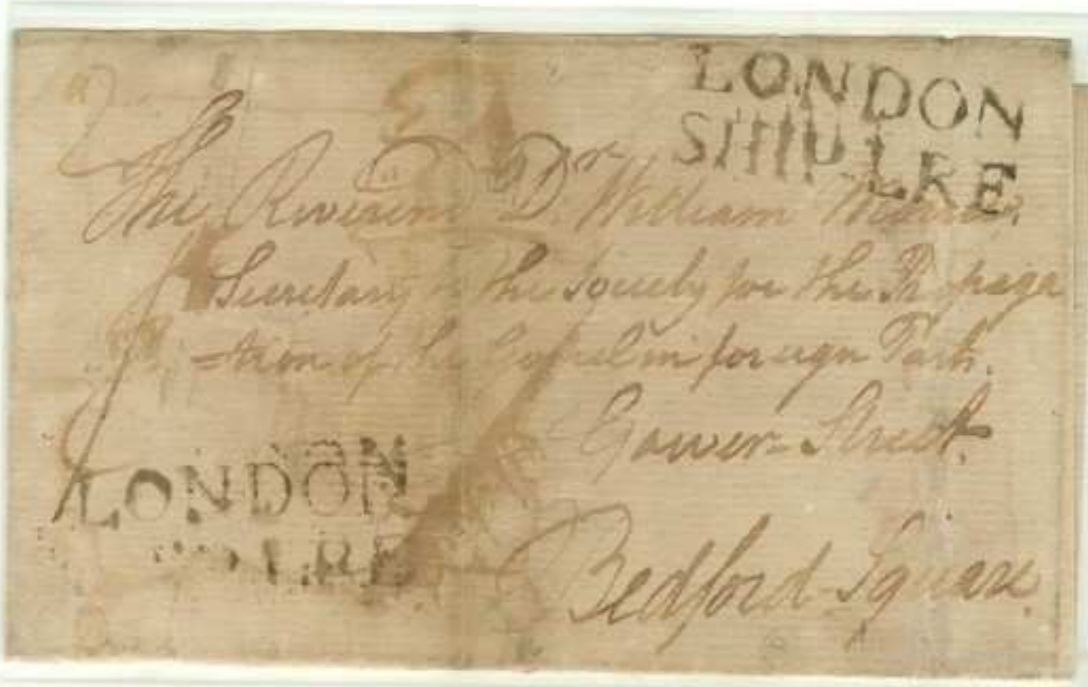 LONDON
SHIP LRE
The Reverend Dr. William
Secretary to the Society for the Propaga
-tion of the Gospel in foreign Parts.
Gower-Street.
Bedford-Square.
LONDON
LRE